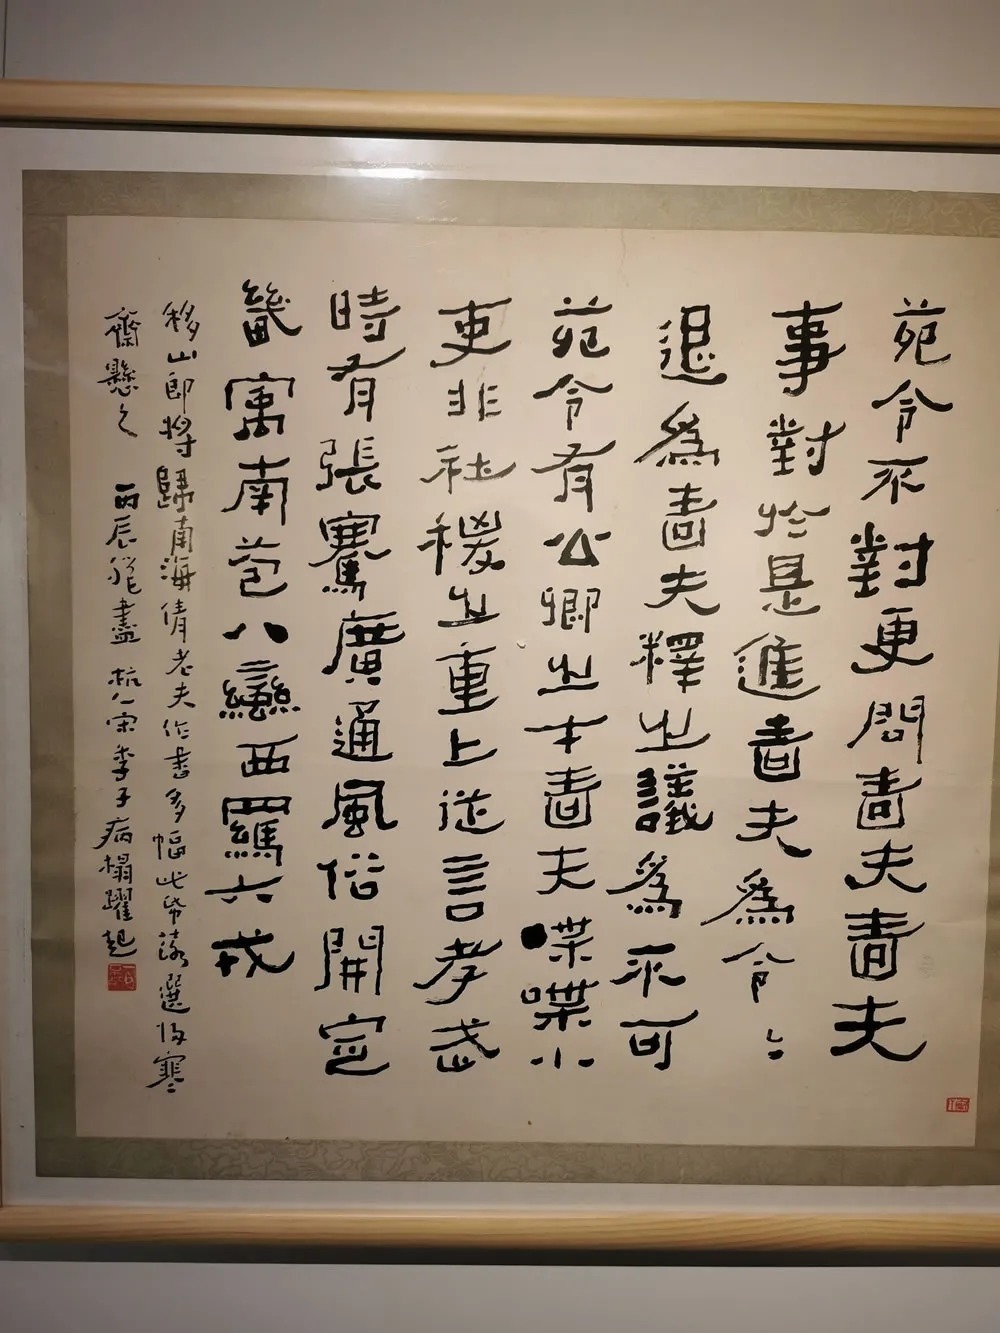 苑令不對更問嗇夫嗇夫
事對於是進嗇夫為令令
退為嗇夫釋之議為不可
苑令有公卿之才嗇夫喋喋小
吏非社稷之重上從言孝武
時有張騫廣通風俗開定
畿寓南苞八蠻西羈六戎
移山郎將歸南海倩老夫作書多幅此帋落選 寒
齋懸之 丙辰臘盡 杭人宋季子病榻躍起